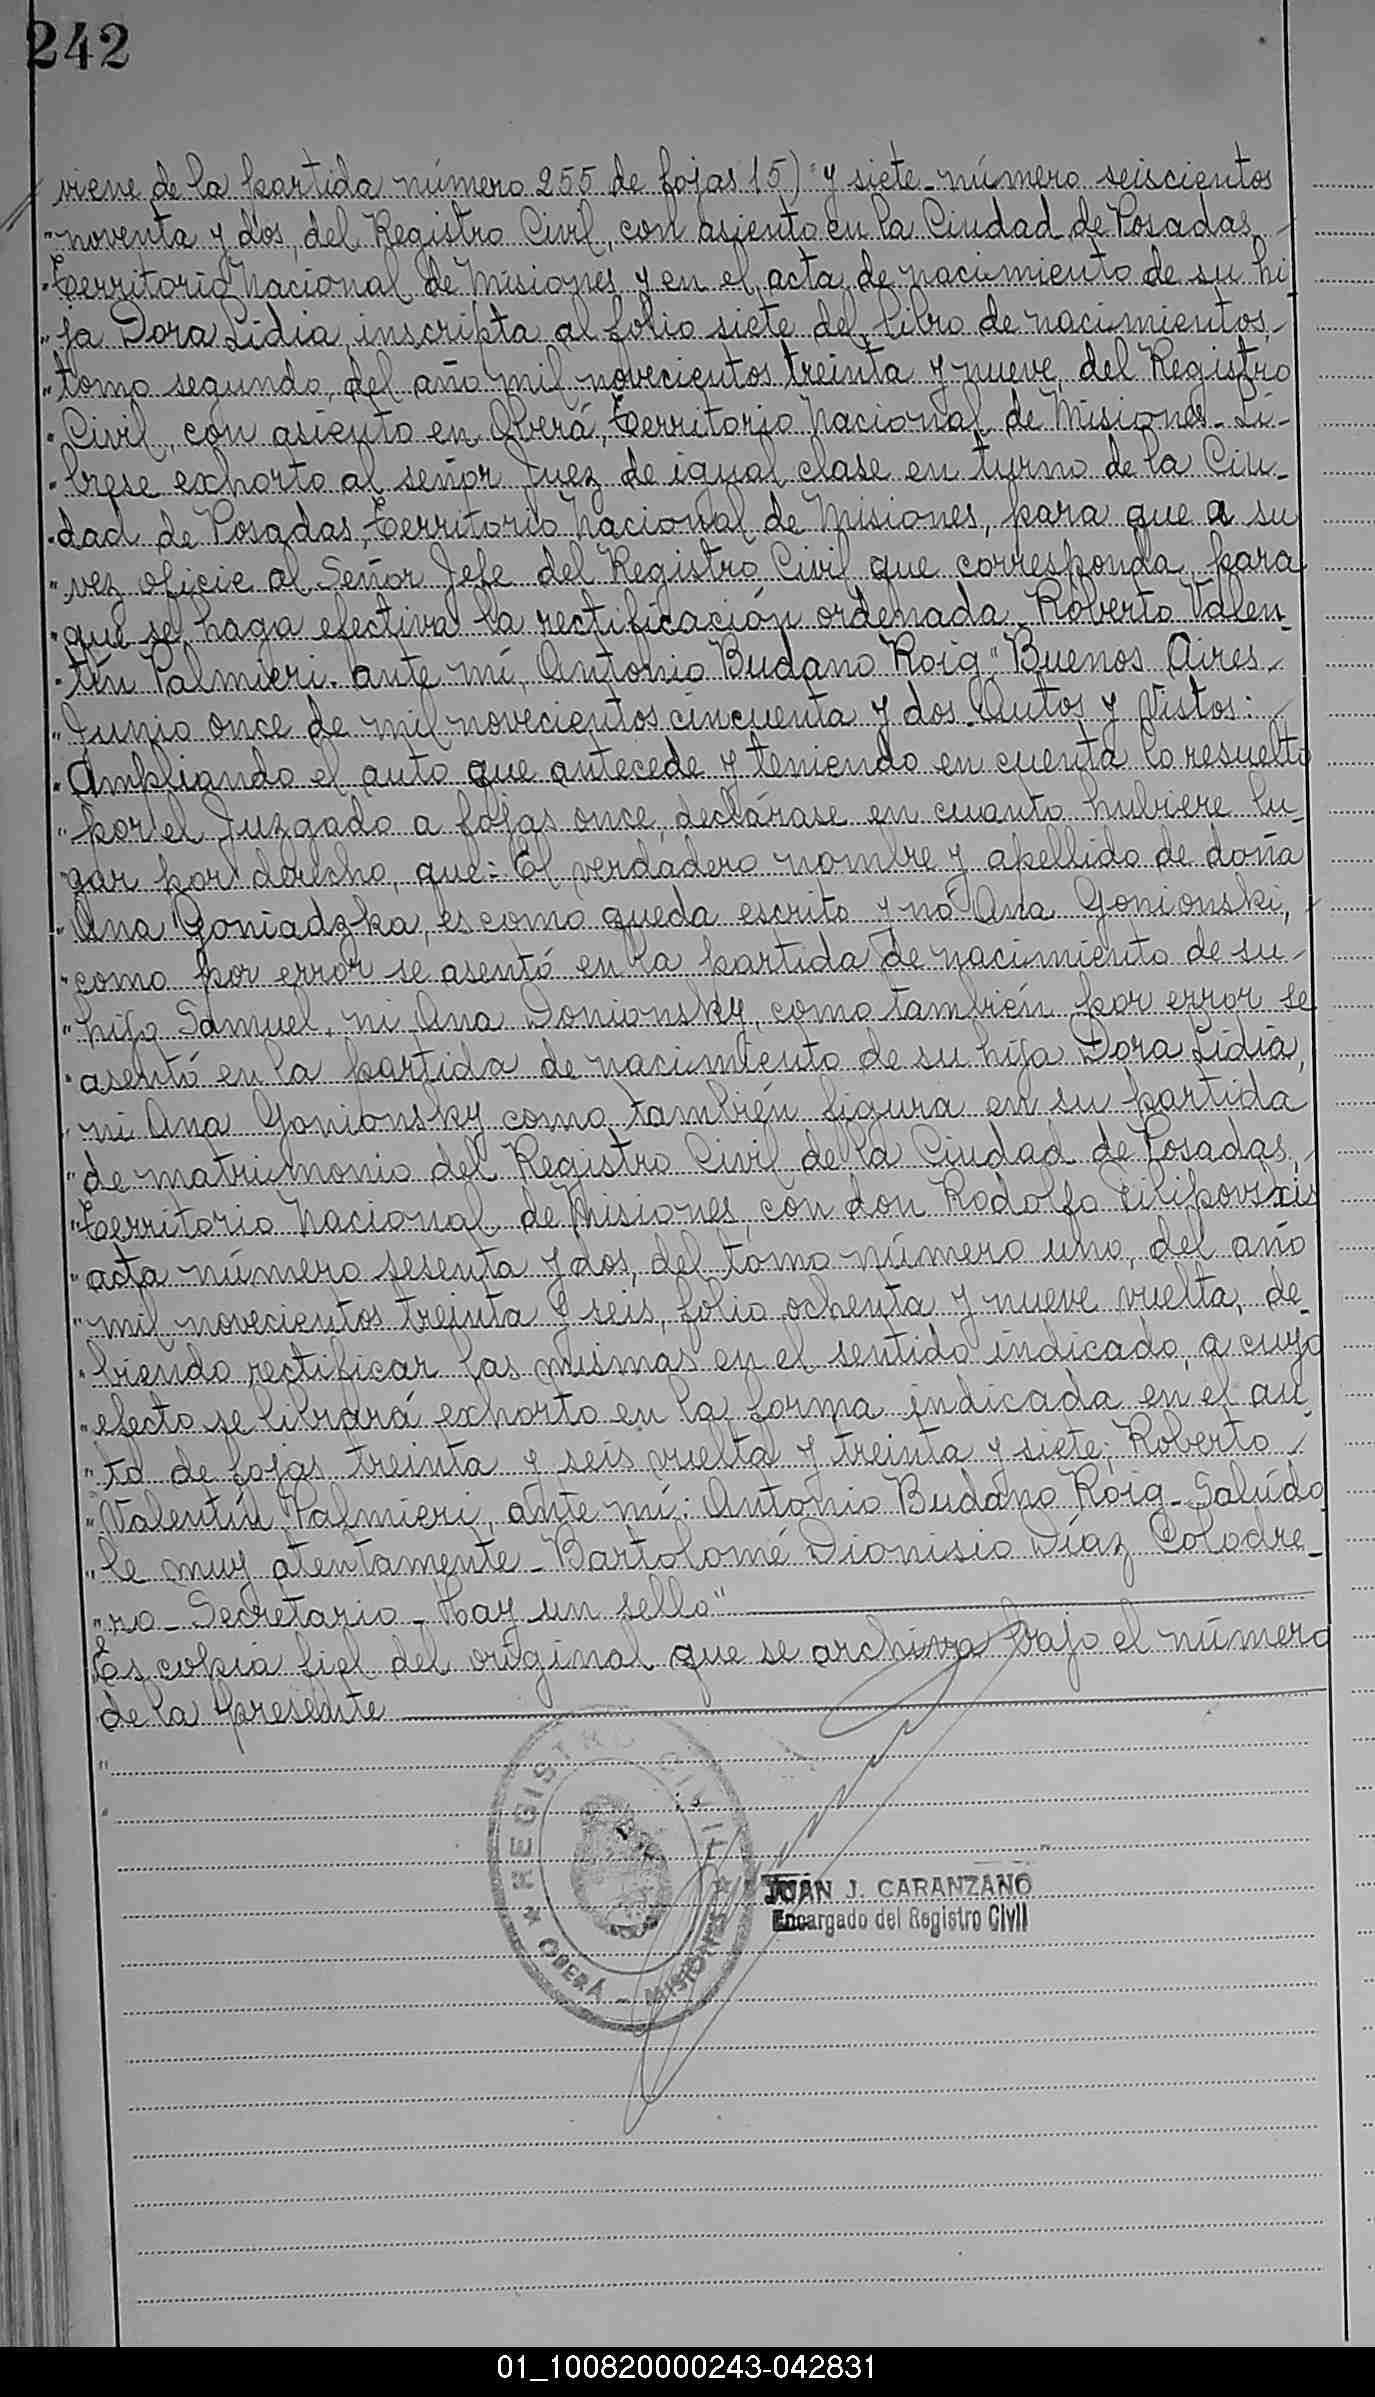 242
viene de la partida número 255 de fojas 15) "y siete - número seiscientos
"noventa y dos, del Registro Civil, con asiento en la Ciudad de Posadas,
"Territorio Nacional de Misiones y en el acta de nacimiento de su hi-
"ja Dora Lidia, inscripta al folio siete del libro de nacimientos,
"tomo segundo, del año mil novecientos treinta y nueve, del Registro
"Civil, con asiento en Oberá, Territorio Nacional de Misiones - Lí-
"brese exhorto al señor Juez de igual clase en turno de la Ciu-
"dad de Posadas, Territorio Nacional de Misiones, para que a su
"vez oficie al Señor Jefe del Registro Civil que corresponda, para
"que se haga efectiva la rectificación ordenada. Roberto Valen-
"tín Palmieri. ante mí, Antonio Budano Roig" Buenos Aires
"Junio once de mil novecientos cincuenta y dos. Autos y Vistos:
"Ampliando el auto que antecede y teniendo en cuenta lo resuelto
"por el Juzgado a fojas once, declárase en cuanto hubiere lu-
"gar por derecho, que: El verdadero nombre y apellido de doña
"Ana Goniadzka, es como queda escrito y no Ana Gonionski,
"como por error se asentó en la partida de nacimiento de su
"hijo Samuel, ni Ana Donionsky, como también por error se
"asentó en la partida de nacimiento de su hija Dora Lidia,
"ni Ana Gonionsky como también figura en su partida
"de matrimonio del Registro Civil de la Ciudad de Posadas,
"Territorio Nacional de Misiones, con don Rodolfo
"acta número sesenta y dos, del tomo número uno, del año
"mil novecientos treinta y seis, folio ochenta y nueve vuelta, de-
"biendo rectificar las mismas en el sentido indicado, a cuyo
"efecto se librará exhorto en la forma indicada en el au-
"to de fojas treinta y seis vuelta y treinta y siete; Roberto
"Valentín Palmieri, ante mí: Antonio Budano Roig - Salúdo
"le muy atentamente - Bartolomé Dionisio Díaz Colodre-
"ro - Secretario - Hay un sello"
Es copia fiel del original que se archiva bajo el número
de la presente
REGISTRO CIVIL
OBERÁ - MISIONES
JUAN J. CARANZANO
Encargado del Registro Civil
01_100820000243-042831